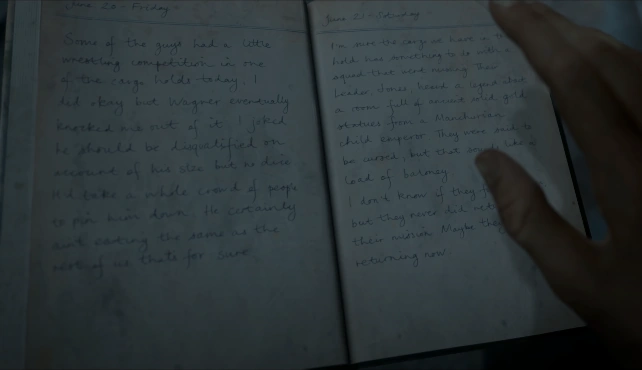 June 20 - Friday -
Some of the guys had a little
wrestling competition in one
of the cargo holds today. I
did okay but Wagner eventually
knocked me out of it. I joked
he should be disqualified on
account of his size but no dice
It'd take a whole crowd of people
to pin him down. He certainly
aint eating the same as the
rest of us that's for sure
June 21 - Saturday -
I'm sure the cargo we have in the
hold has something to do with a
squad that went missing. Their
Leader, Jones, heard a legend about
a room full of ancient solid, gold
statues from a Manchurian
child emperor. They were said to
be cursed, but that sounds like a
load of baloney
I don't know if they
but they never did
their mission. Maybe they
returning now